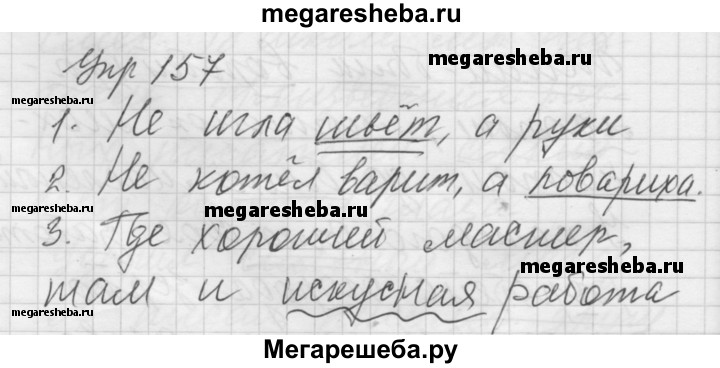 megaresheba.ru
Упр 157
megaresheba.ru
megaresheba.ru
1. Не игла шьёт, а руки
megaresheba.ru
2. Не котёл варит, а повариха.
megaresheba.ru
3. Где хороший мастер,
megaresheba.ru
там и искусная работа
megaresheba.ru
Мегарешеба.ру